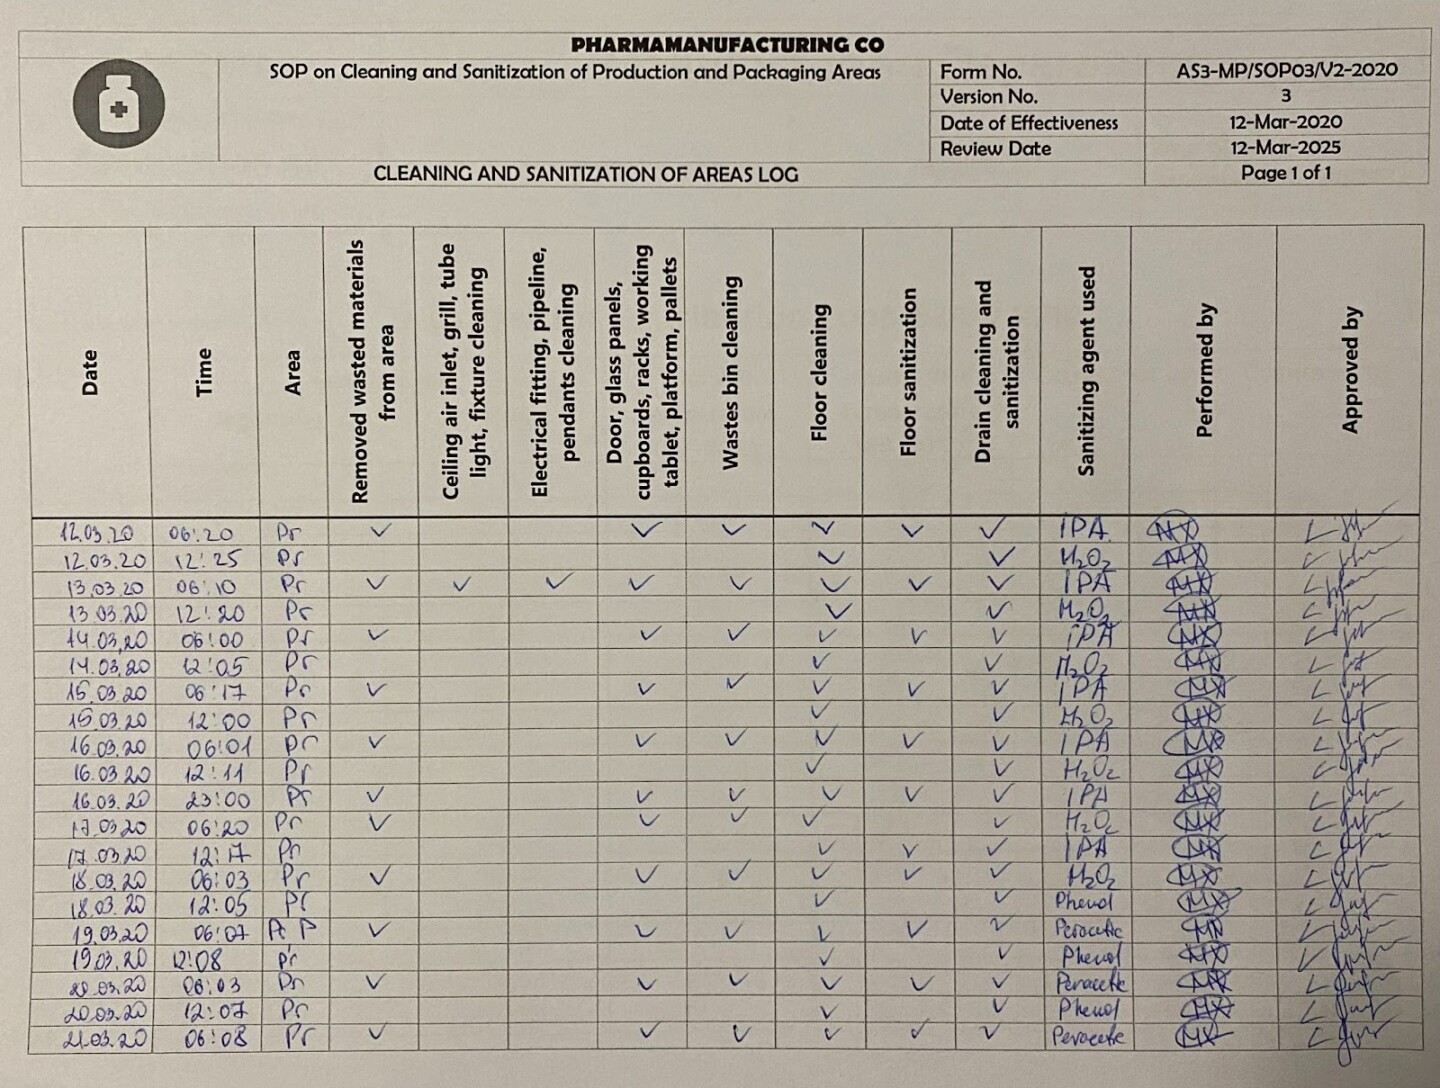 PHARMAMANUFACTURING CO
SOP on Cleaning and Sanitization of Production and Packaging Areas
Form No. AS3-MP/SOP03/V2-2020
Version No. 3
Date of Effectiveness 12-Mar-2020
Review Date 12-Mar-2025
CLEANING AND SANITIZATION OF AREAS LOG Page 1 of 1
Date
Time
Area
Removed wasted materials
from area
Ceiling air inlet, grill, tube
light, fixture cleaning
Electrical fitting, pipeline,
pendants cleaning
Door, glass panels,
cupboards, racks, working
tablet, platform, pallets
Wastes bin cleaning
Floor cleaning
Floor sanitization
Drain cleaning and
sanitization
Sanitizing agent used
Performed by
Approved by
12.03.20 06:20 Pr ✓ ✓ ✓ ✓ ✓ ✓ IPA MX
12.03.20 12:25 Pr ✓ ✓ H₂O₂ MX
13.03.20 06:10 Pr ✓ ✓ ✓ ✓ ✓ ✓ ✓ ✓ IPA MX
13.03.20 12:20 Pr ✓ ✓ H₂O₂ MX
14.03.20 06:00 Pr ✓ ✓ ✓ ✓ ✓ ✓ IPA MX
14.03.20 12:05 Pr ✓ ✓ H₂O₂ MX
15.03.20 06:17 Pr ✓ ✓ ✓ ✓ ✓ ✓ IPA MX
15.03.20 12:00 Pr ✓ ✓ H₂O₂ MX
16.03.20 06:01 Pr ✓ ✓ ✓ ✓ ✓ ✓ IPA MX
16.03.20 12:11 Pr ✓ ✓ H₂O₂ MX
16.03.20 23:00 Pr ✓ ✓ ✓ ✓ ✓ ✓ IPA MX
17.03.20 06:20 Pr ✓ ✓ ✓ ✓ ✓ H₂O₂ MX
17.03.20 12:17 Pr ✓ ✓ ✓ IPA MX
18.03.20 06:03 Pr ✓ ✓ ✓ ✓ ✓ ✓ H₂O₂ MX
18.03.20 12:05 Pr ✓ ✓ Phenol MX
19.03.20 06:07 P ✓ ✓ ✓ ✓ ✓ ✓ Peracetic MX
19.03.20 12:08 Pr ✓ ✓ Phenol MX
20.03.20 06:03 Pr ✓ ✓ ✓ ✓ ✓ ✓ Peracetic MX
20.03.20 12:07 Pr ✓ ✓ Phenol MX
21.03.20 06:08 Pr ✓ ✓ ✓ ✓ ✓ ✓ Peracetic MX